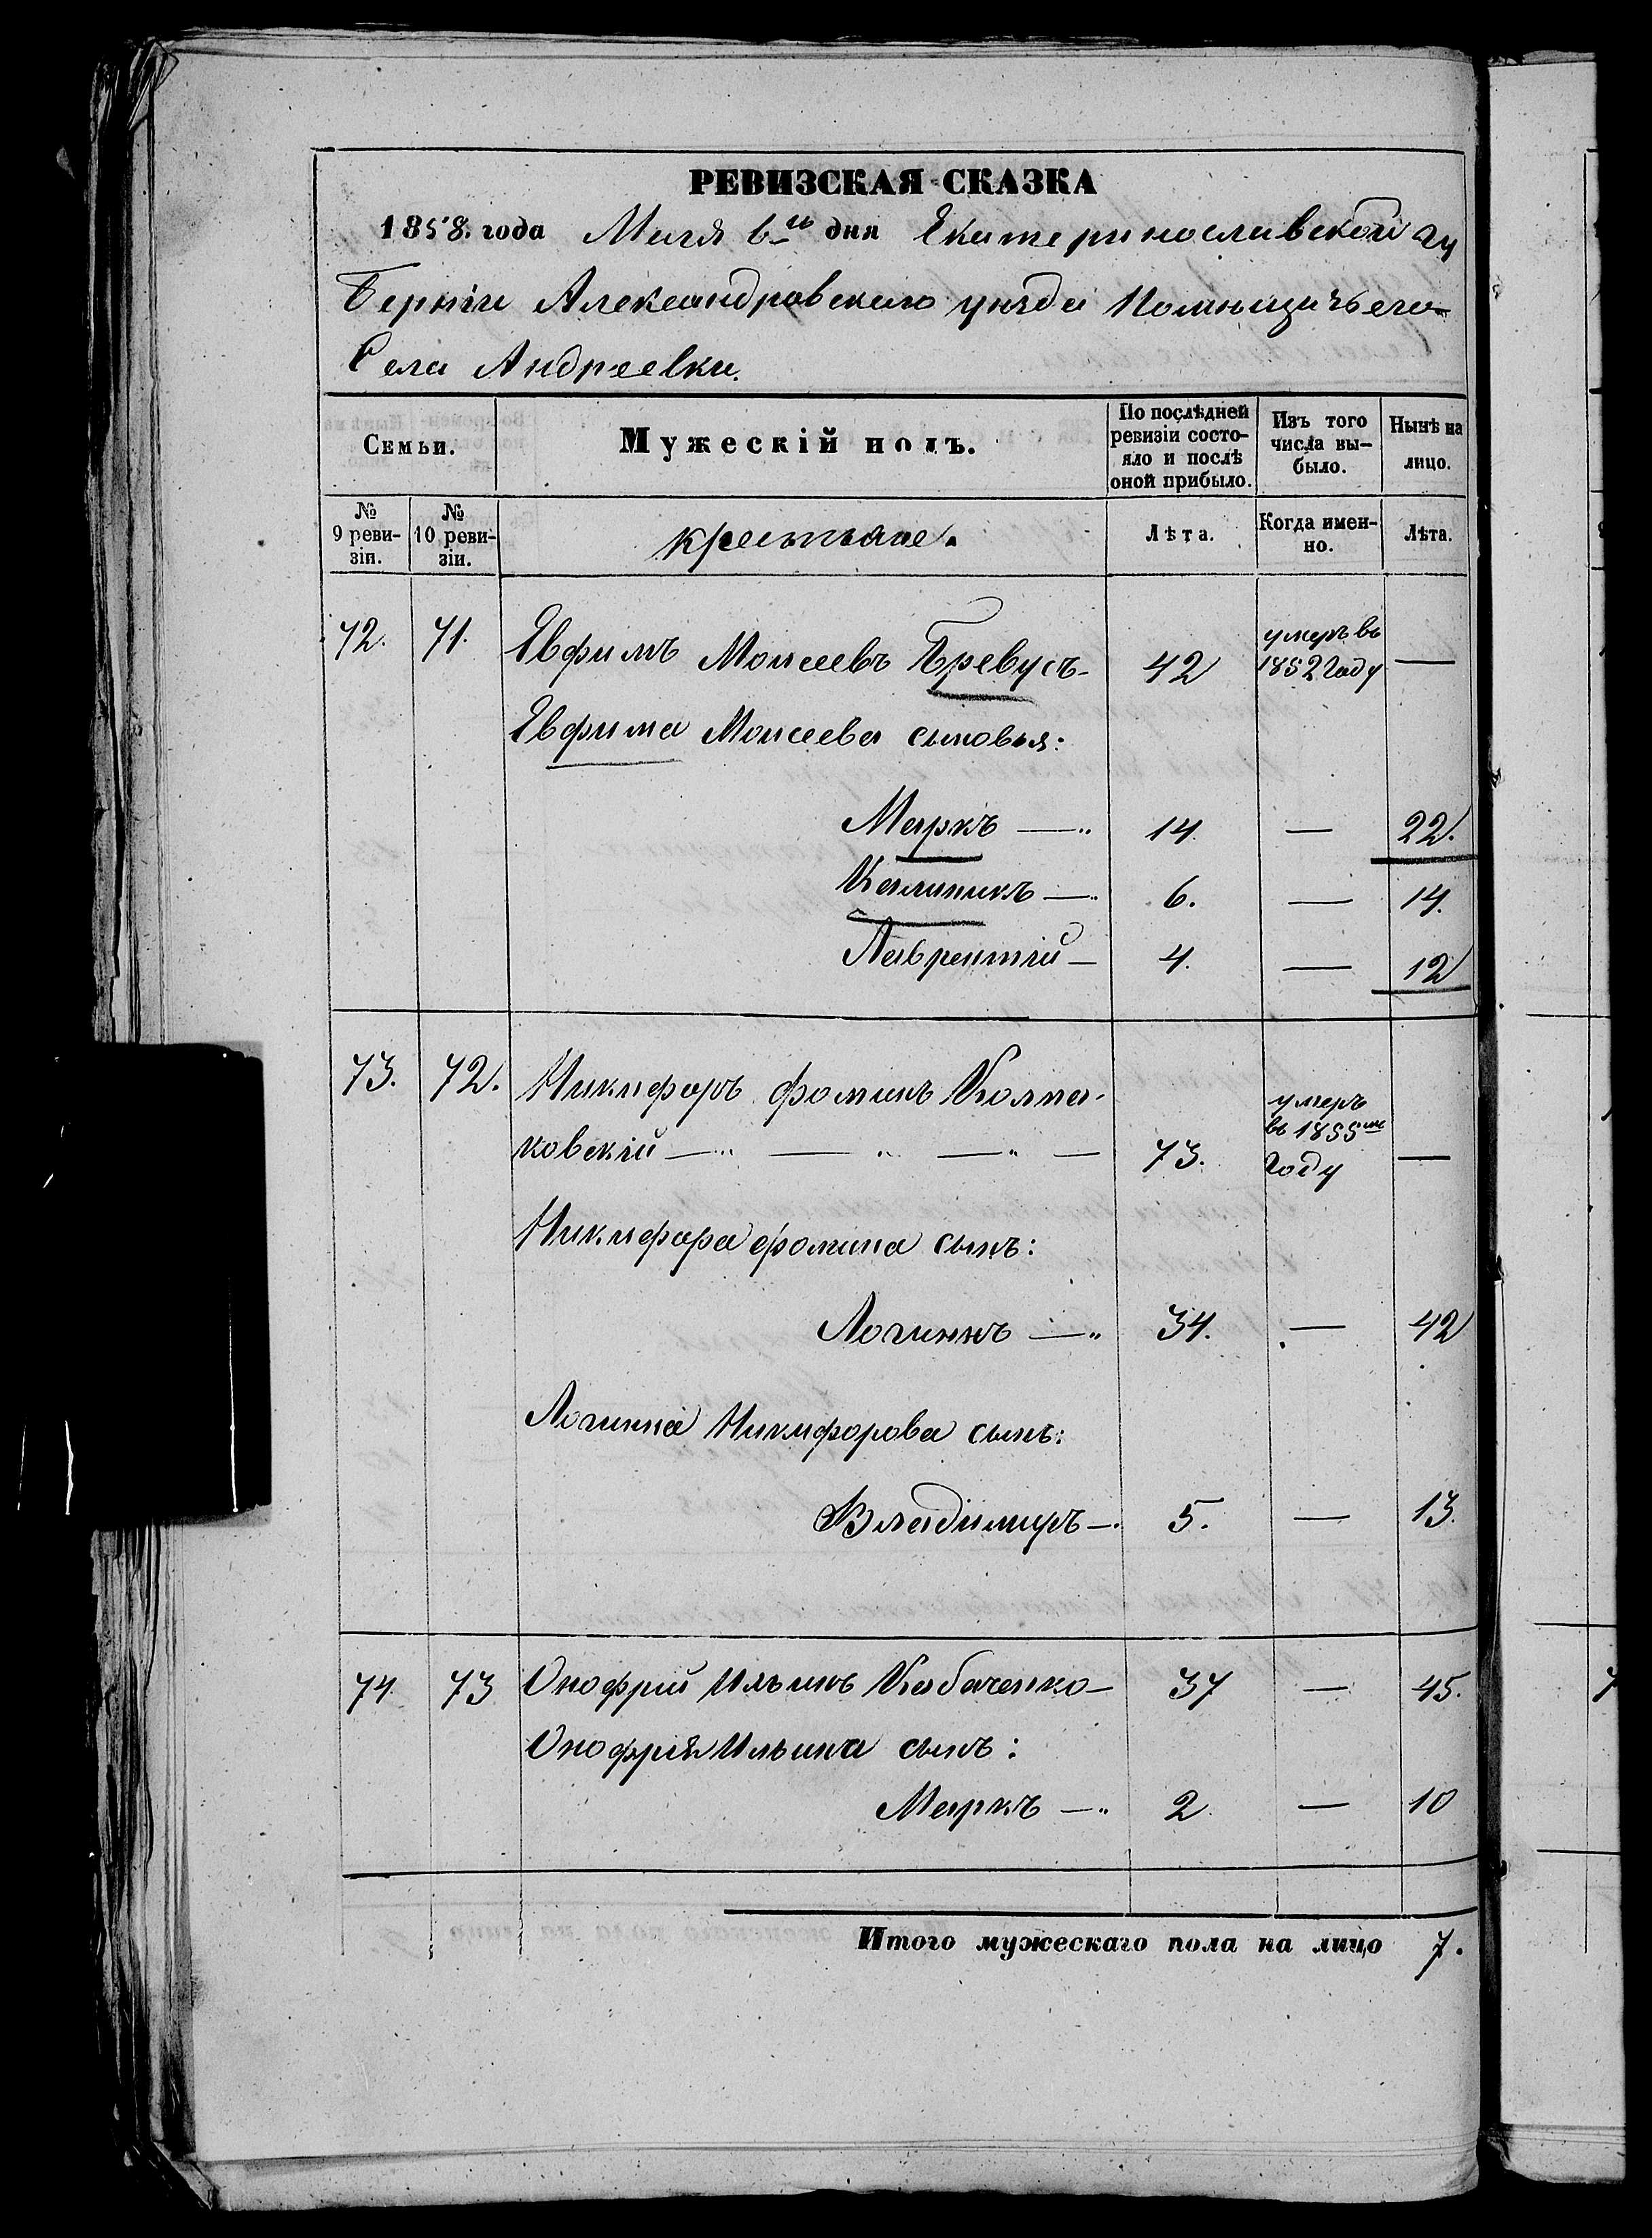 РЕВИЗСКАЯ СКАЗКА
1858. года Маія 6го дня Екатеринославской гу
берніи Александровскаго уѣзда Помѣщичьего
Села Андреевки.
Семьи.
Мужескій полъ.
По послѣдней ревизіи состояло и послѣ оной прибыло.
Изъ того числа выбыло.
Нынѣ на лицо.
№ 9 ревизіи.
№ 10 ревизіи.
крестьяне.
Лѣта.
Когда именно.
Лѣта.
72. 71. Евфимъ Моисеевъ Бревусъ- 42 умеръ въ 1852 Году —
Евфима Моисеева сыновья:
Маркъ — 14 — 22.
Калиникъ — 6. — 14.
Лаврентій — 4. — 12
73. 72. Никифоръ Фоминъ Колпа-
ковскій — 73. умеръ въ 1855мъ Году —
Никифора Фомина сынъ:
Логинъ — 34. — 42
Логина Никифорова сынъ:
Владимиръ —. 5. — 13.
74. 73 Онофрій Ильинъ Кабаченко — 37 — 45.
Онофрія Ильина сынъ:
Маркъ — 2. — 10
Итого мужескаго пола на лицо 7.